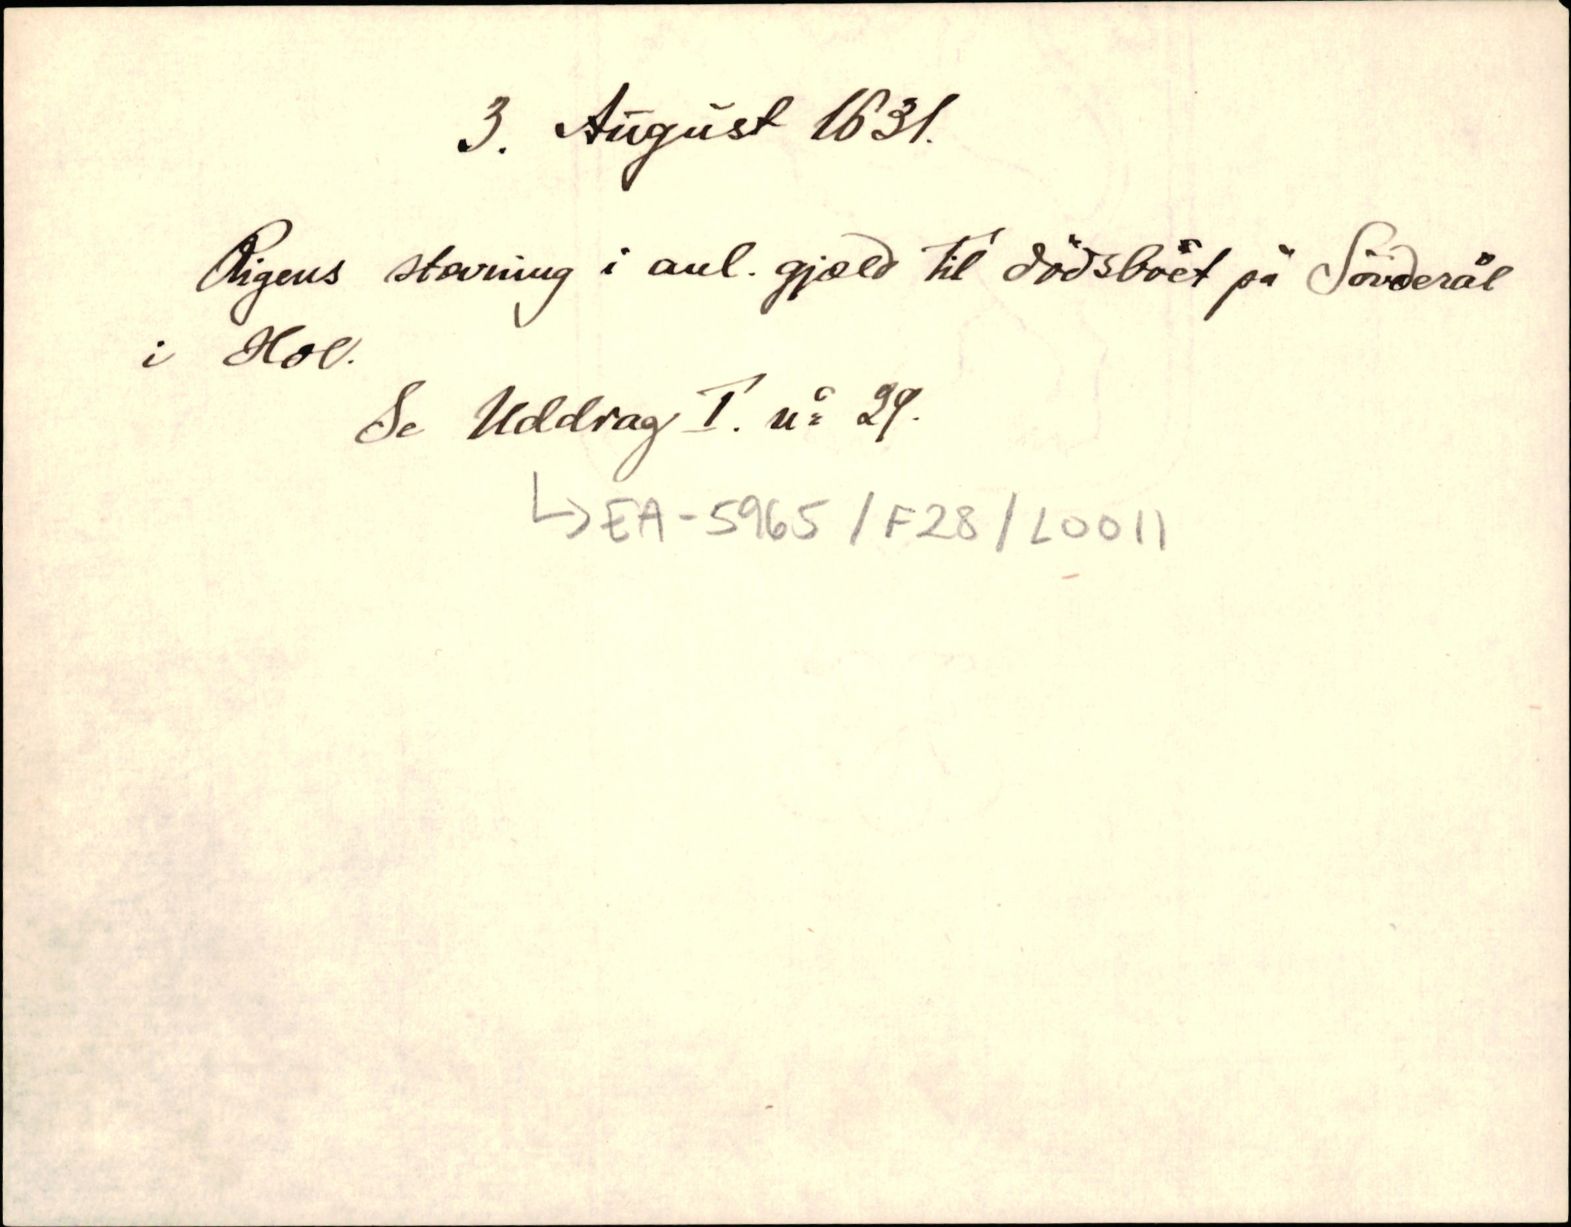 3. August 1631.
Rigens stevning i anl. gjæld til dödsboet på Sönderål
i Hol.
Se Uddrag I. no 29.
↳ EA-5965/F28/L0011